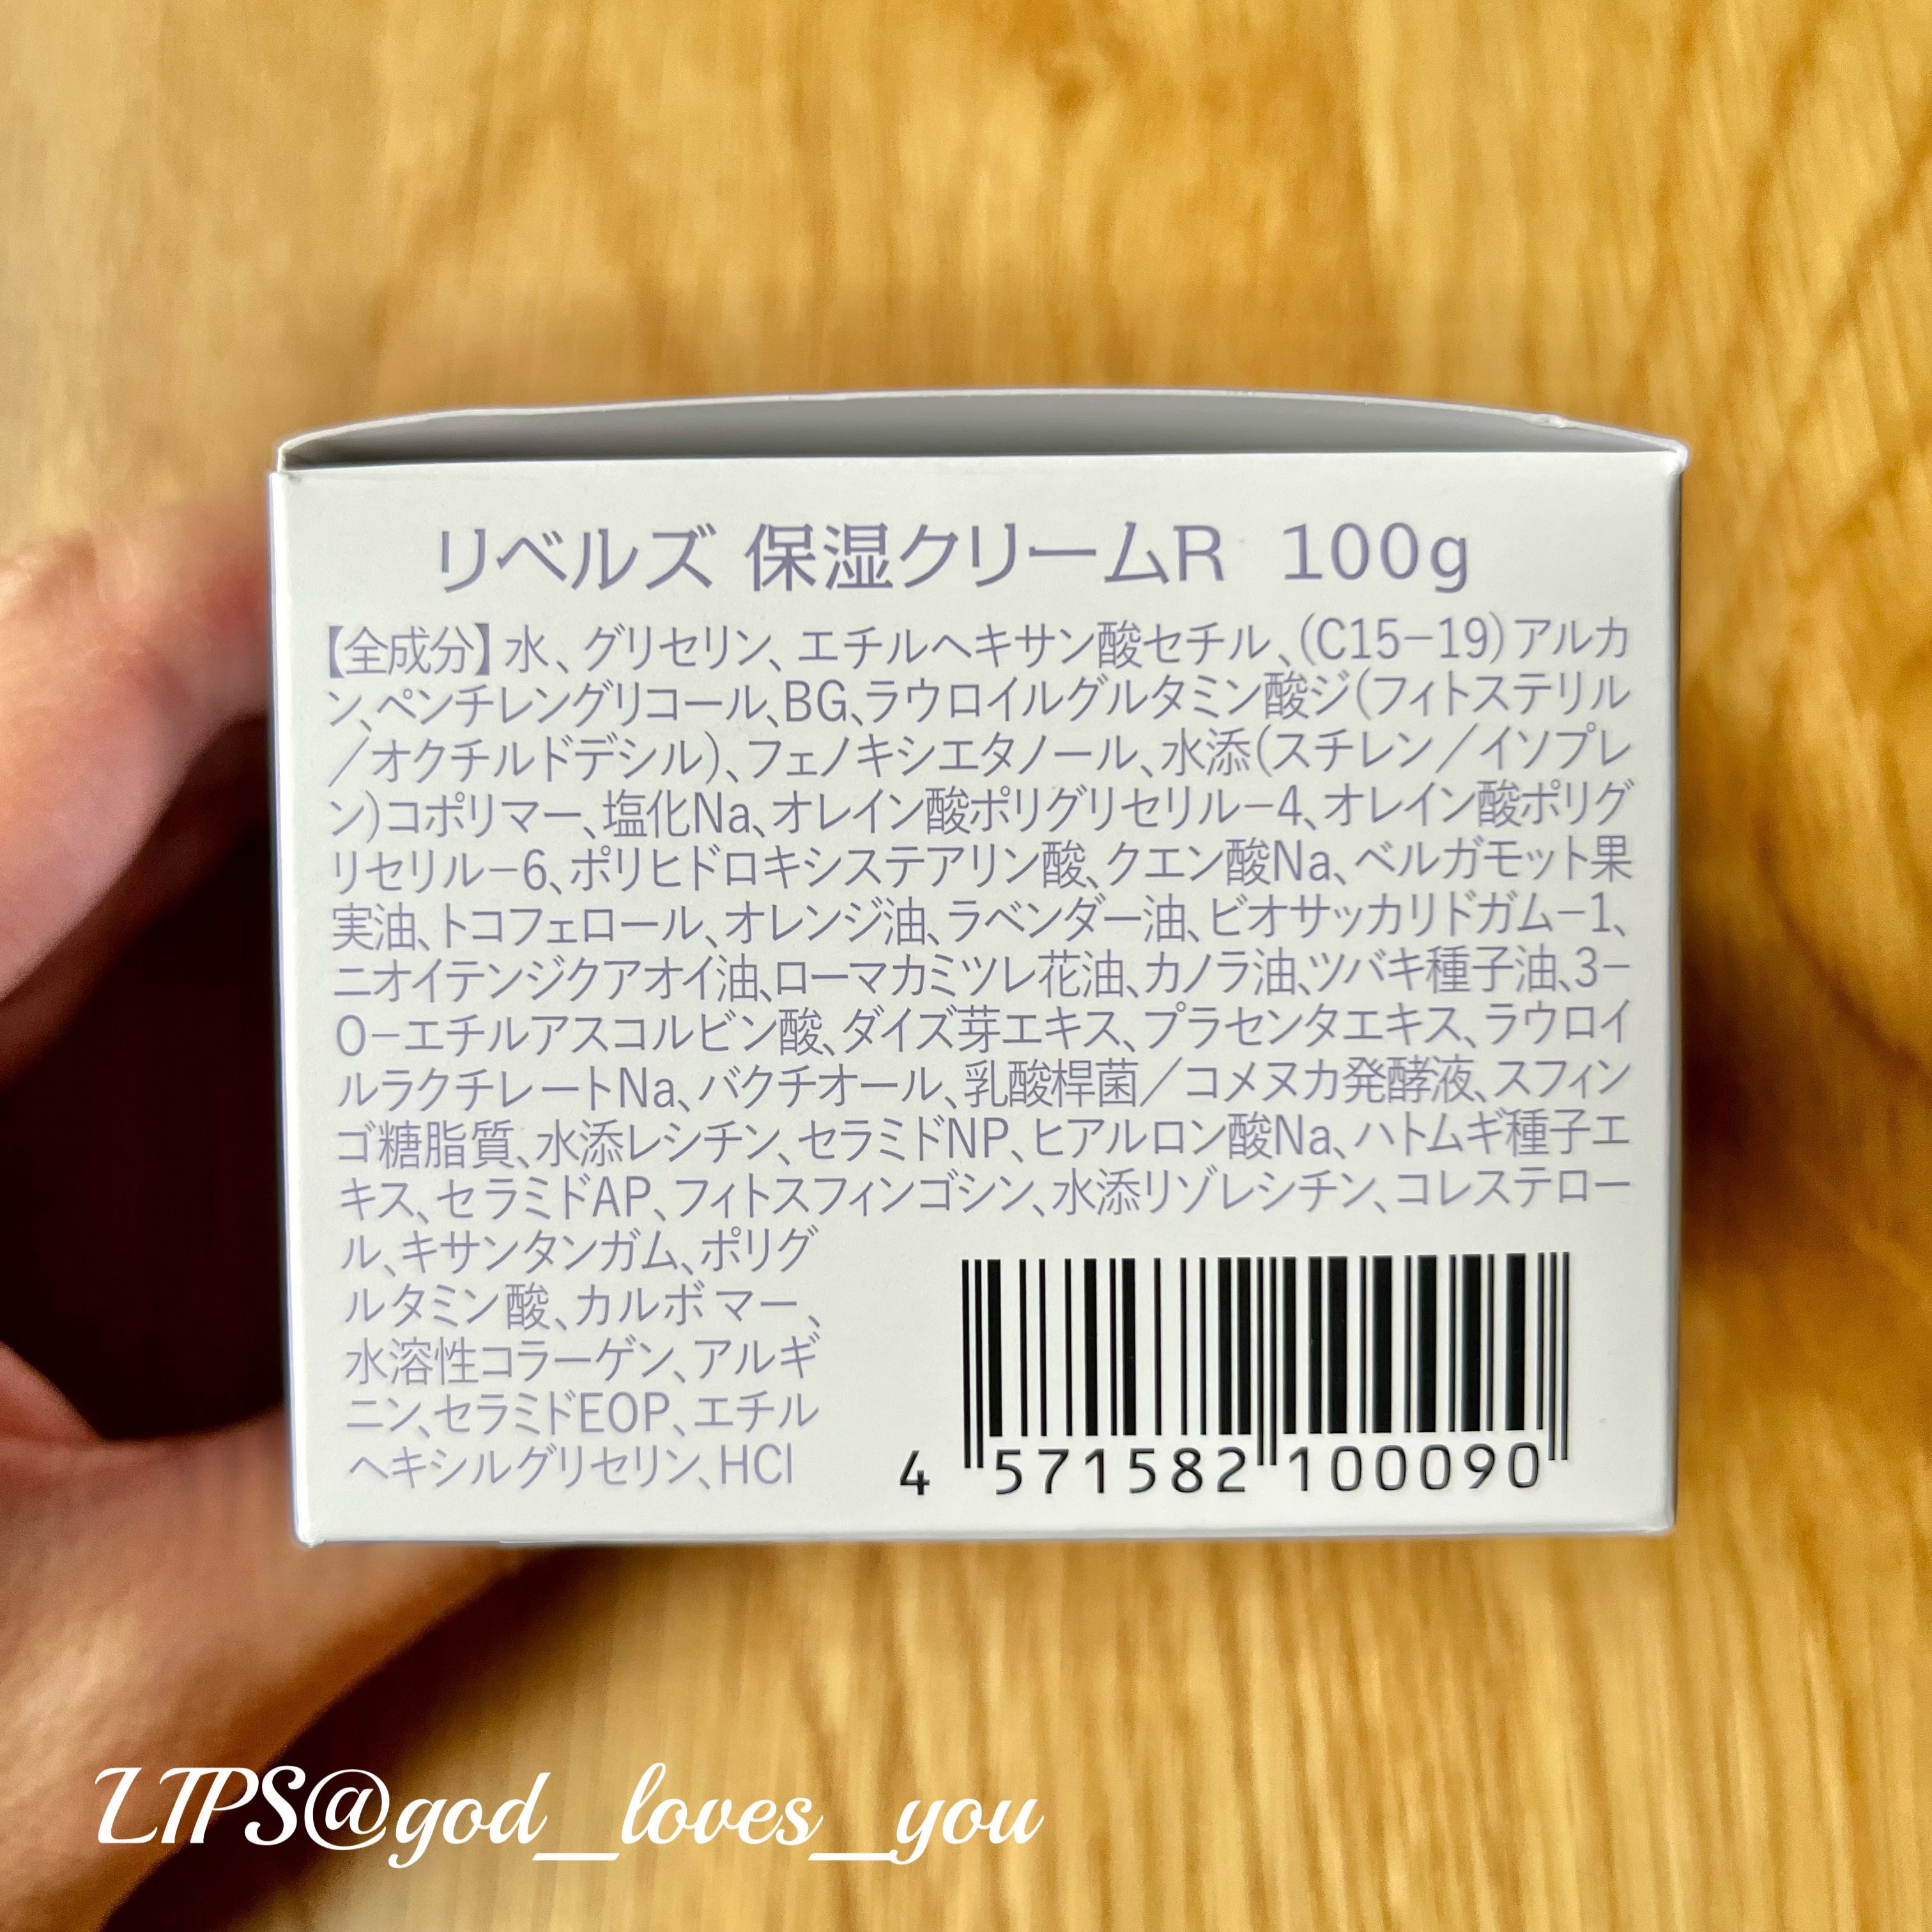 リベルズ 保湿クリームR 100g
【全成分】水、グリセリン、エチルヘキサン酸セチル、(C15-19)アルカ
ン、ペンチレングリコール、BG、ラウロイルグルタミン酸ジ(フィトステリル
/オクチルドデシル)、フェノキシエタノール、水添(スチレン/イソプレ
ン)コポリマー、塩化Na、オレイン酸ポリグリセリル-4、オレイン酸ポリグ
リセリル-6、ポリヒドロキシステアリン酸、クエン酸Na、ベルガモット果
実油、トコフェロール、オレンジ油、ラベンダー油、ビオサッカリドガム-1、
ニオイテンジクアオイ油、ローマカミツレ花油、カノラ油、ツバキ種子油、3-
O-エチルアスコルビン酸、ダイズ芽エキス、プラセンタエキス、ラウロイ
ルラクチレートNa、バクチオール、乳酸桿菌/コメヌカ発酵液、スフィン
ゴ糖脂質、水添レシチン、セラミドNP、ヒアルロン酸Na、ハトムギ種子エ
キス、セラミドAP、フィトスフィンゴシン、水添リゾレシチン、コレステロー
ル、キサンタンガム、ポリグ
ルタミン酸、カルボマー、
水溶性コラーゲン、アルギ
ニン、セラミドEOP、エチル
ヘキシルグリセリン、HCl
4 571582 100090
LIPS@god_loves_you